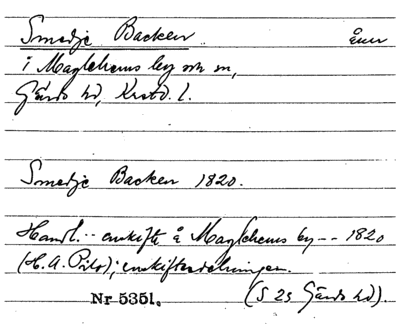 Smedje Backen åker
i Maglehems by och sn,
Gärds hd, Krstd. l.
Smedje Backen 1820.
Handl. -- enskifte å Maglehems by -- 1820
(H. A. Pihl); enskiftesdelningen.
Nr 5351. (S 25 Gärds hd).